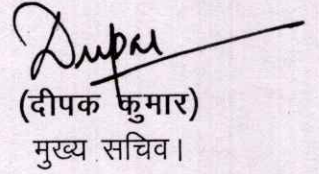 (दीपक कुमार)
मुख्य सचिव।